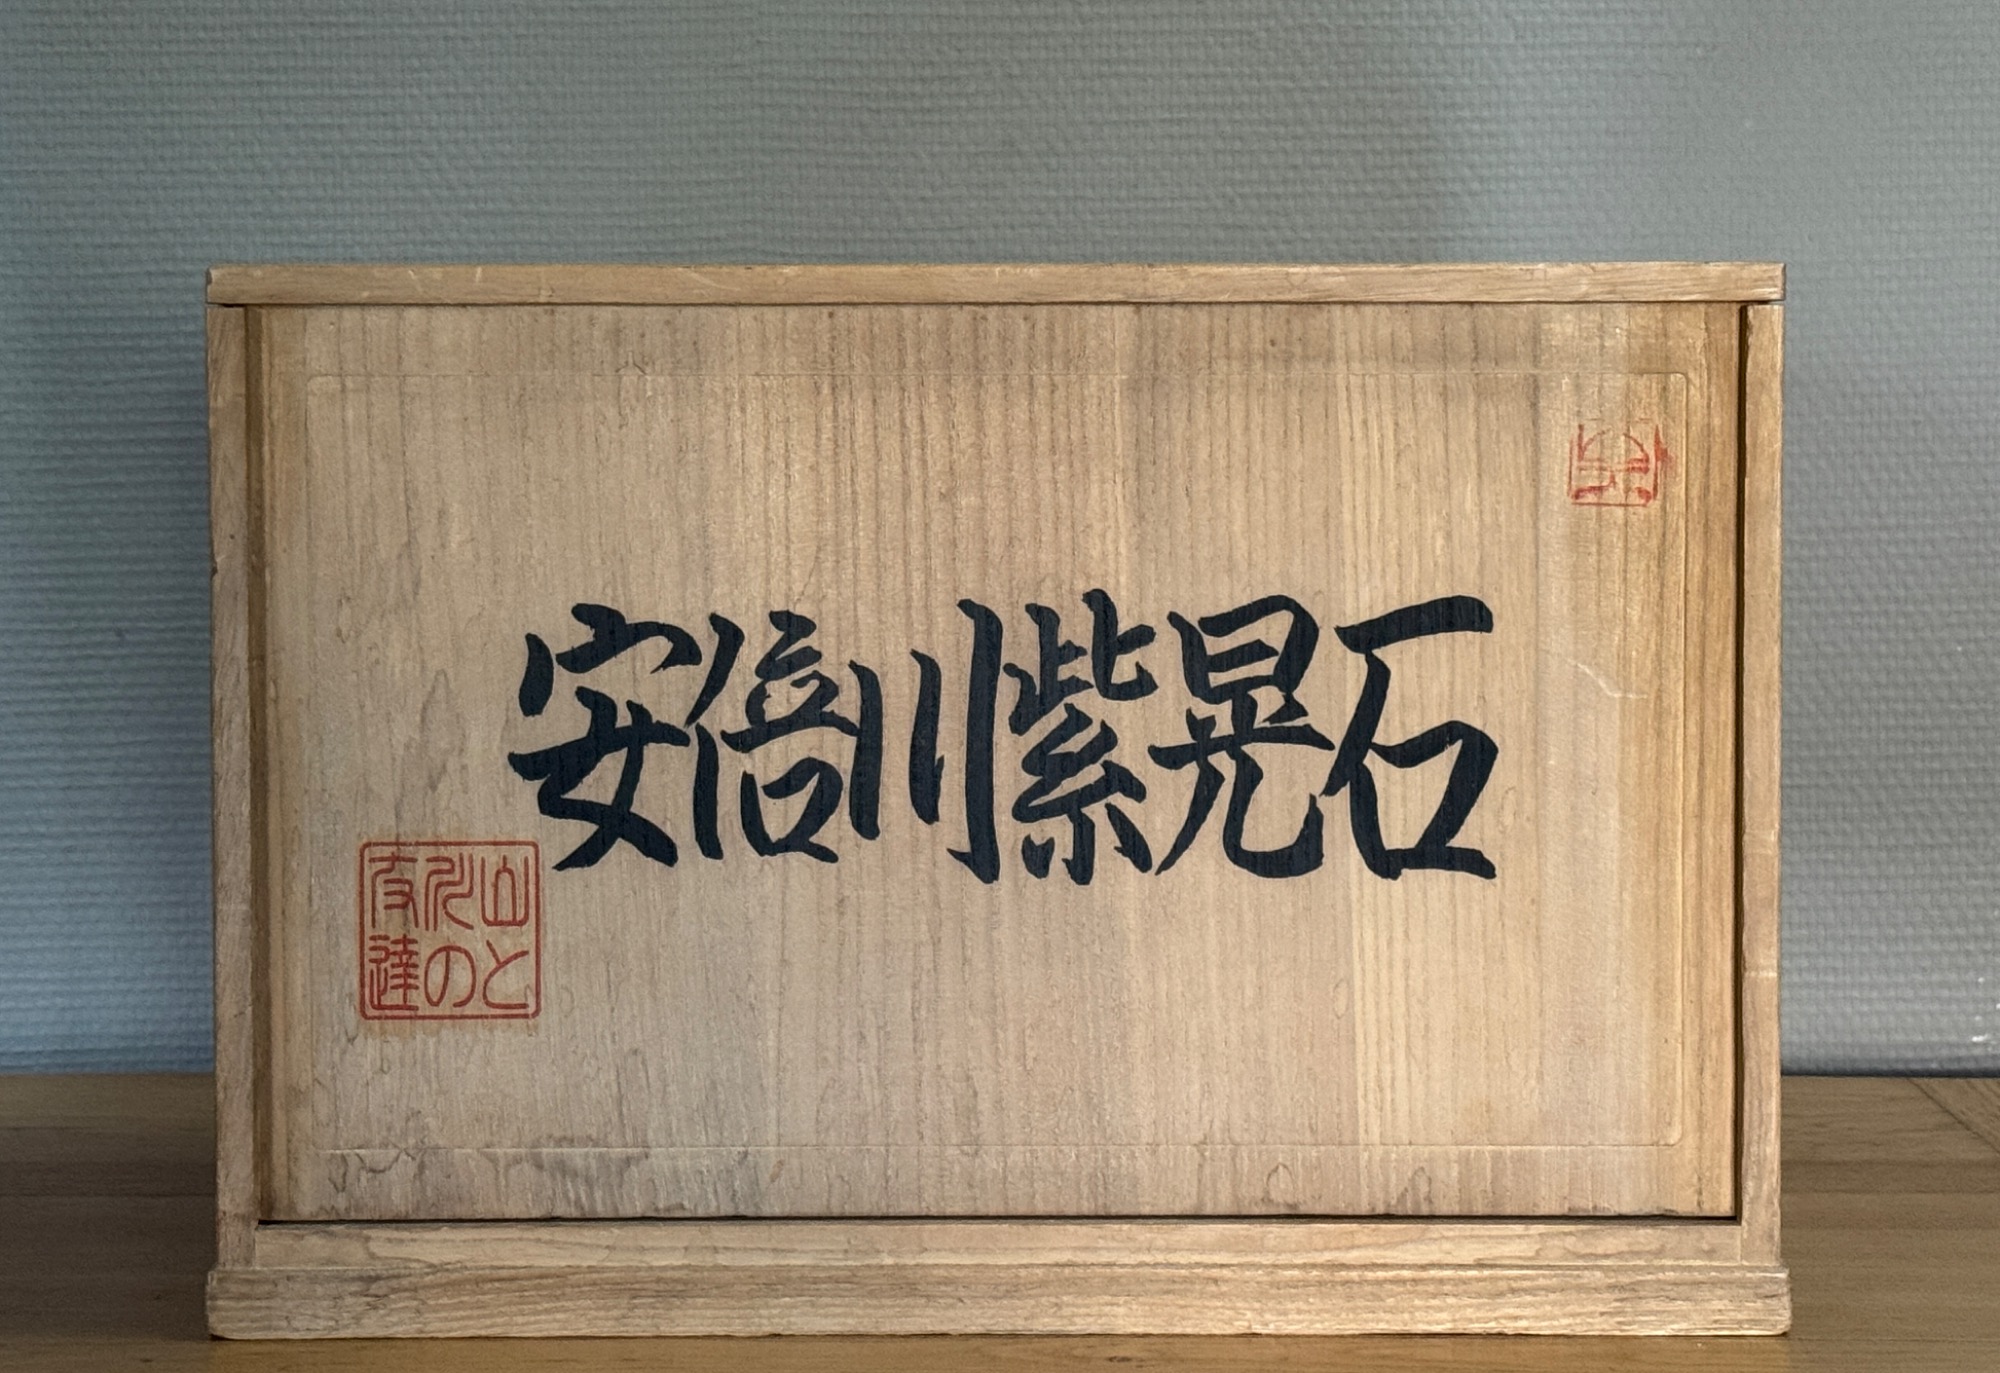 安倍川紫晃石
山と
川の
友達